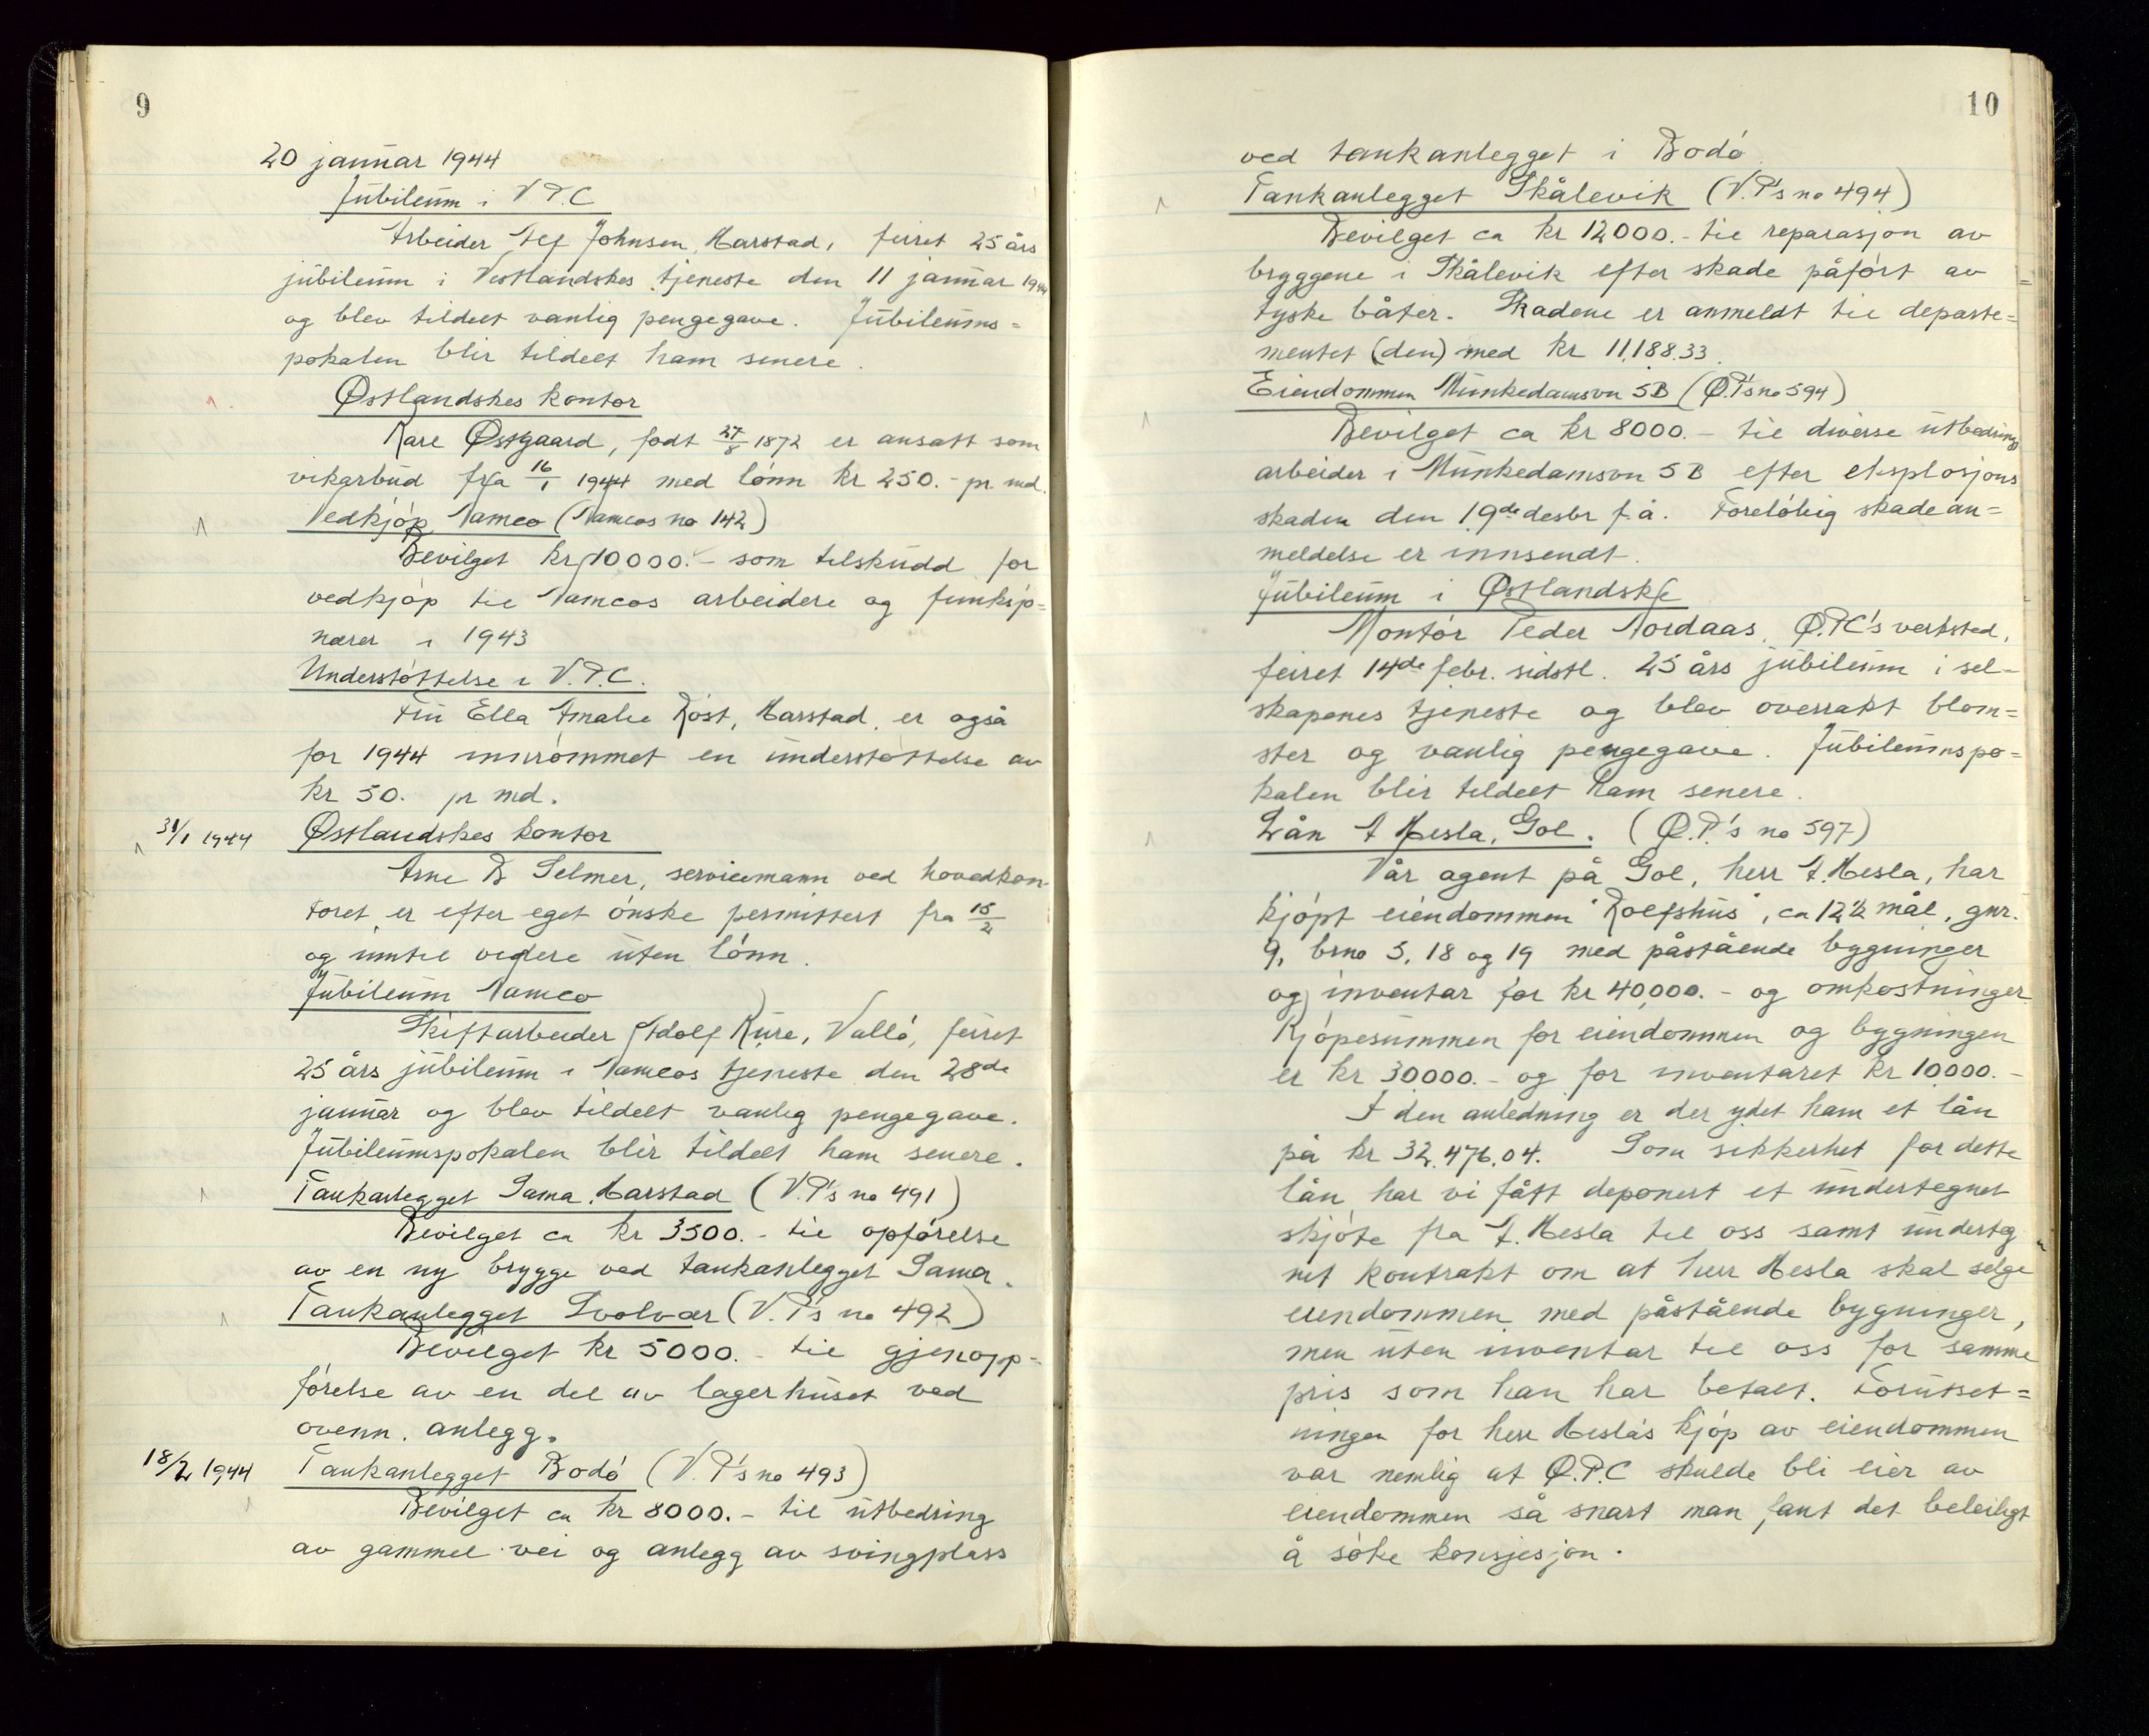 9
20 januar 1944
Jubileum i V.P.C
Arbeider Alf Johnsen, Harstad, feiret 25 års
jubileum i Vestlandskes tjeneste den 11 januar 1944
og blev tildelt vanlig pengegave. Jubileums=
pokalen blir tildelt ham senere.
Østlandskes kontor
Kare Østgaard, født 27/8 1872 er ansatt som
vikarbud fra 16/1 1944 med lønn kr 250.- pr md.
Vedkjøp Namco (Namcos no 142)
Bevilget kr 10000.- som tilskudd for
vedkjøp til Namcos arbeidere og funksjo=
nærer i 1943
Understøttelse i V.P.C.
Fru Ella Amalie Røst, Harstad, er også
for 1944 innrømmet en understøttelse av
kr 50. pr md.
31/1 1944 Østlandskes kontor
Arne B Selmer, servicemann ved hovedkon-
toret, er efter eget ønske permittert fra 15/2
og inntil videre uten lønn.
Jubileum Namco
Skiftarbeider Adolf Kure, Vallø, feiret
25 års jubileum i Namcos tjeneste den 28de
januar og blev tildelt vanlig pengegave.
Jubileumspokalen blir tildelt ham senere.
Tankanlegget Sama, Harstad (V.P's no 491)
Bevilget ca kr 3500.- til opførelse
av en ny brygge ved tankanlegget Sama.
Tankanlegget Svolvær (V.P's no 492)
Bevilget kr 5000.- til gjenopp=
førelse av en del av lagerhuset ved
ovenn. anlegg.
18/2 1944 Tankanlegget Bodø (V.P's no 493)
Bevilget ca kr 8000.- til utbedring
av gammel vei og anlegg av svingplass
10
ved tankanlegget i Bodø.
Tankanlegget Skålevik (V.P's no 494)
Bevilget ca kr 12000.- til reparasjon av
bryggene i Skålevik efter skade påført av
tyske båter. Skadene er anmeldt til departe=
mentet (den) med kr 11,188.33.
Eiendommen Munkedamsvn 5B (Ø.P's no 594)
Bevilget ca kr 8000.- til diverse utbedrings
arbeider i Munkedamsvn 5B efter eksplosjons
skaden den 19de desbr f.å. Foreløbig skadean=
meldelse er innsendt.
Jubileum i Østlandske
Montør Peder Nordaas, Ø.P.C's verksted,
feiret 14de febr. sidstl. 25 års jubileum i sel-
skapenes tjeneste og blev overrakt blom=
ster og vanlig pengegave. Jubileumspo=
kalen blir tildelt ham senere.
Lån A Hesla, Gol. (Ø.P.'s no 597)
Vår agent på Gol, herr A. Hesla, har
kjøpt eiendommen "Rolfshus", ca 12½ mål, gnr.
9, brno 5, 18 og 19 med påstående bygninger
og inventar for kr 40,000.- og omkostninger.
Kjøpesummen for eiendommen og bygningen
er kr 30000.- og for inventaret kr 10000.-
I den anledning er der ydet ham et lån
på kr 32.476.04. Som sikkerhet for dette
lån har vi fått deponert et undertegnet
skjøte fra A. Hesla til oss samt underteg
net kontrakt om at herr Hesla skal selge
eiendommen med påstående bygninger,
men uten inventar til oss for samme
pris som han har betalt. Forutset=
ningen for herr Hesla's kjøp av eiendommen
var nemlig at Ø.P.C skulde bli eier av
eiendommen så snart man fant det beleiligt
å søke konsjesjon.